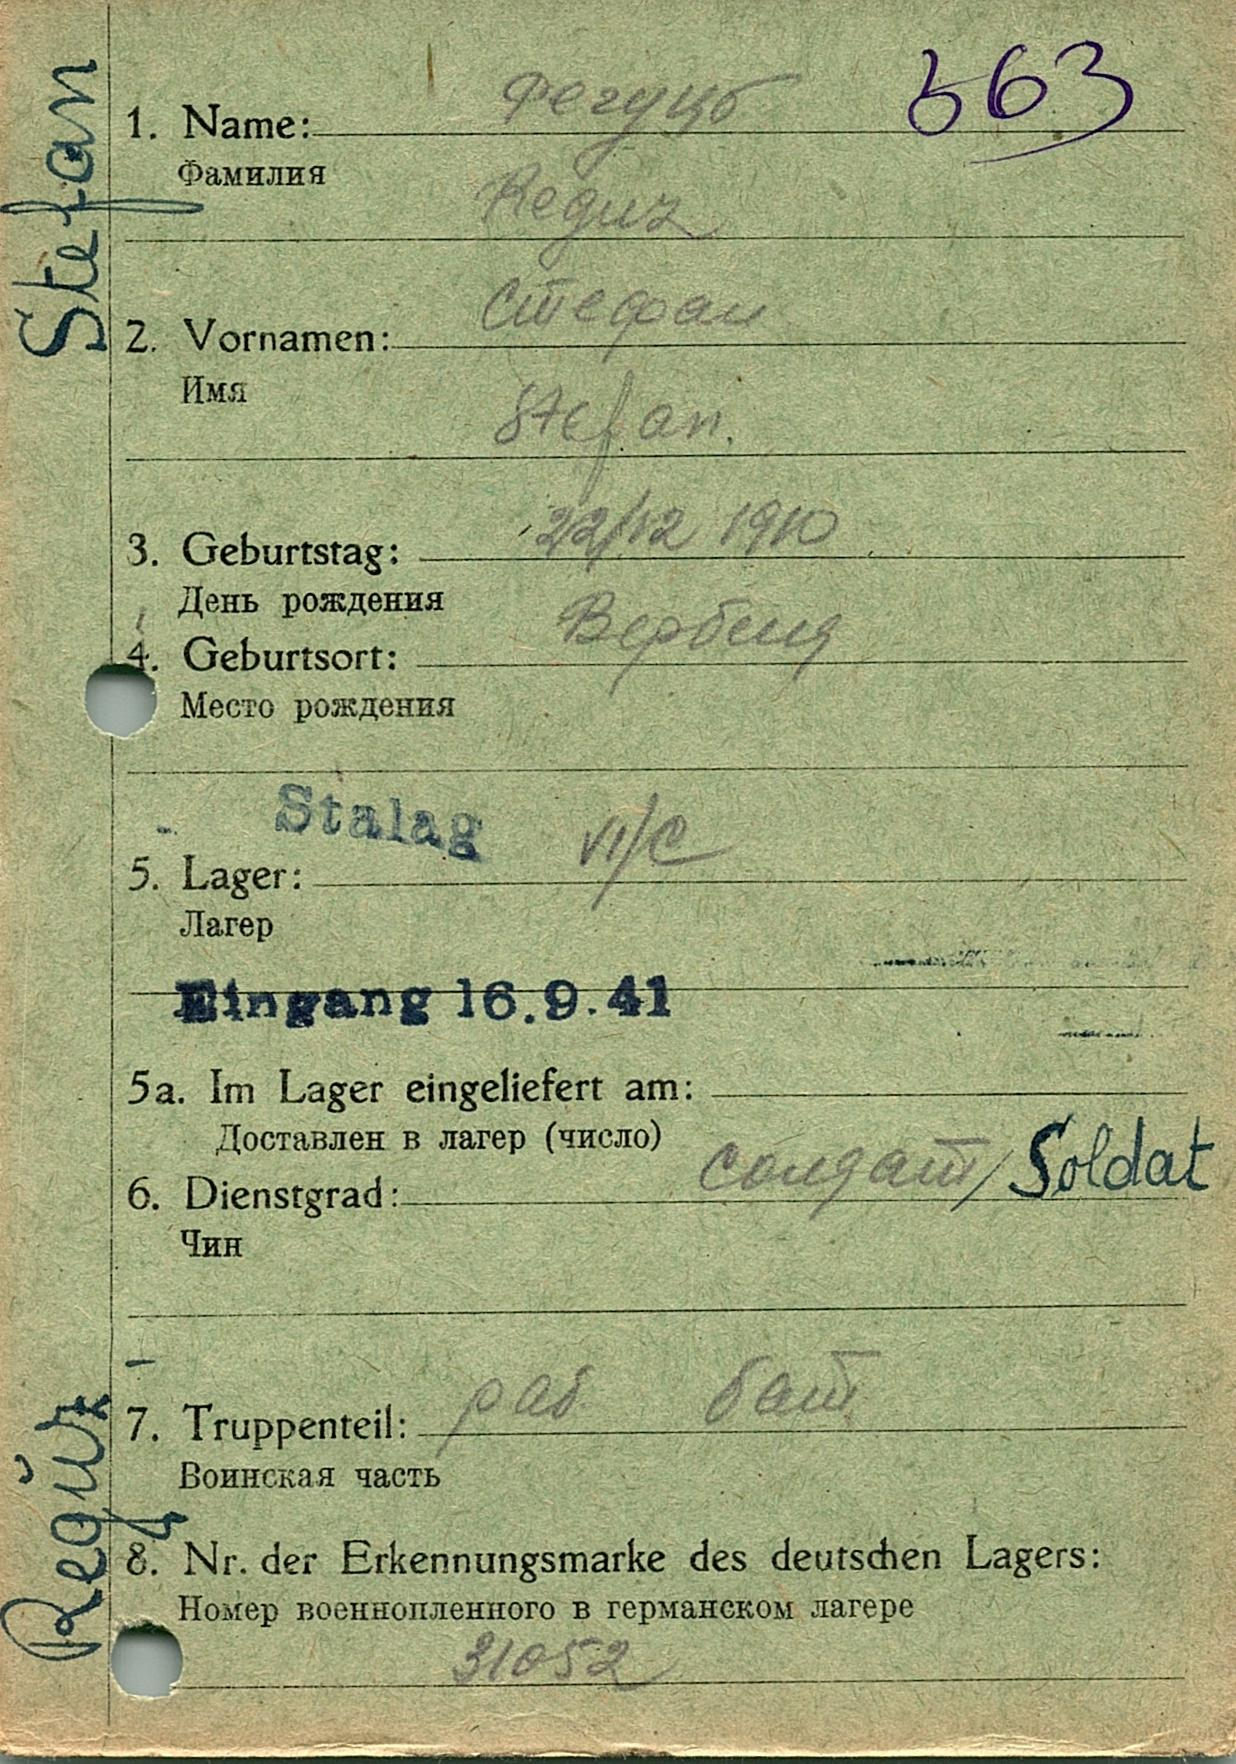 563
Фегуцб
1. Name:
Фамилия
Reguz
Стефан
2. Vornamen:
Имя
Stefan.
22/12 1910
3. Geburtstag:
День рождения
4. Geburtsort:
Место рождения
Stalag VI/C
5. Lager:
Лагер
Eingang 16.9.41
5a. Im Lager eingeliefert am:
Доставлен в лагер (число)
6. Dienstgrad: солдат/Soldat
Чин
7. Truppenteil: раб бат
Воинская часть
8. Nr. der Erkennungsmarke des deutschen Lagers:
Номер военнопленного в германском лагере
31052
Regúz Stefan